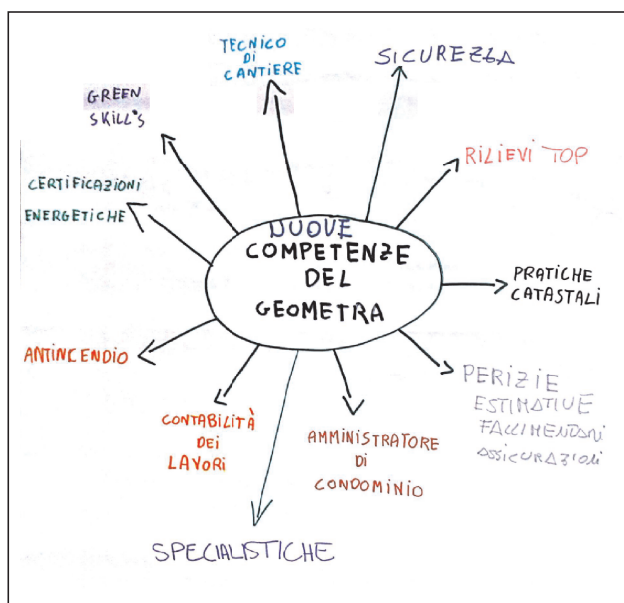 NUOVE
COMPETENZE
DEL
GEOMETRA
TECNICO
DI
CANTIERE
SICUREZZA
RILIEVI TOP
PRATICHE
CATASTALI
PERIZIE
ESTIMATIVE
FALLIMENTARI
ASSICURAZIONI
AMMINISTRATORE
DI
CONDOMINIO
SPECIALISTICHE
CONTABILITÀ
DEI
LAVORI
ANTINCENDIO
CERTIFICAZIONI
ENERGETICHE
GREEN
SKILL'S